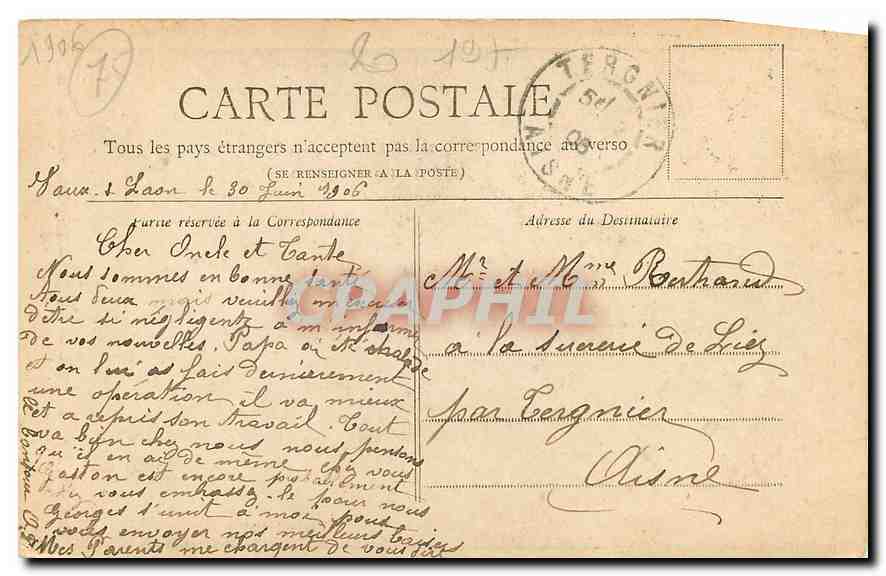 1906
7
TERGNIER
AISNE
CARTE POSTALE
Tous les pays étrangers n'acceptent pas la correspondance au verso
(SE RENSEIGNER A LA POSTE)
Vaux s Laon le 30 Juin 1906
Partie réservée à la Correspondance
Adresse du Destinataire
Cher Oncle et Tante
Nous sommes en bonne santé
tous deux mais veuillez m'excuser
d'être si négligente à m'informer
de vos nouvelles. Papa a été malade
et on lui as fais dernièrement
une opération il va mieux
et a repris son travail. Tout
va bien chez nous nous pensons
qu'il en ai de même chez vous
Gaston est encore probablement
chez vous embrassez le pour nous
Georges s'unit à moi pour
vous envoyer nos meilleurs baisers
Mes Parents me chargent de vous dire
le bonjour
Mr et Mme Bertrand
à la sucrerie de Liez
par Tergnier
Aisne
CPAPHIL